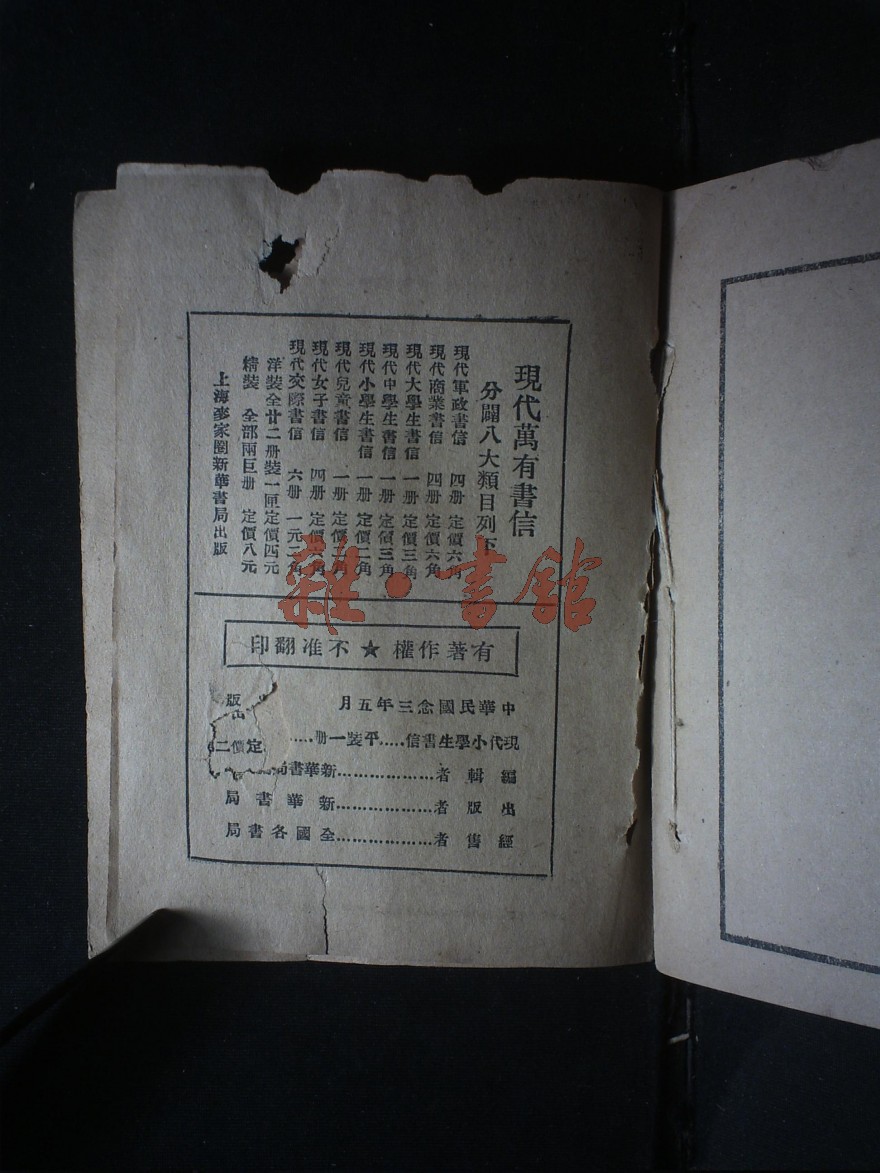 現代萬有書信
分闢八大類目列下
現代軍政書信 四册 定價六角
現代商業書信 四册 定價六角
現代大學生書信 一册 定價三角
現代中學生書信 一册 定價三角
現代小學生書信 一册 定價二角
現代兒童書信 一册 定價二角
現代女子書信 四册 定價 角
現代交際書信 六册 一元二角
洋裝全廿二册裝一匣定價四元
精裝 全部兩巨册 定價八元
上海麥家圈新華書局出版
雜·書館
有著作權★不准翻印
中華民國念三年五月 版
現代小學生書信.....平裝一册..... 定價二
編輯者..................新華書局
出版者..................新華書局
經售者..................全國各書局